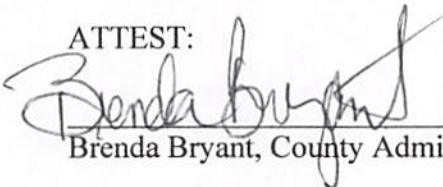 ATTEST:
Brenda Bryant
Brenda Bryant, County Admi